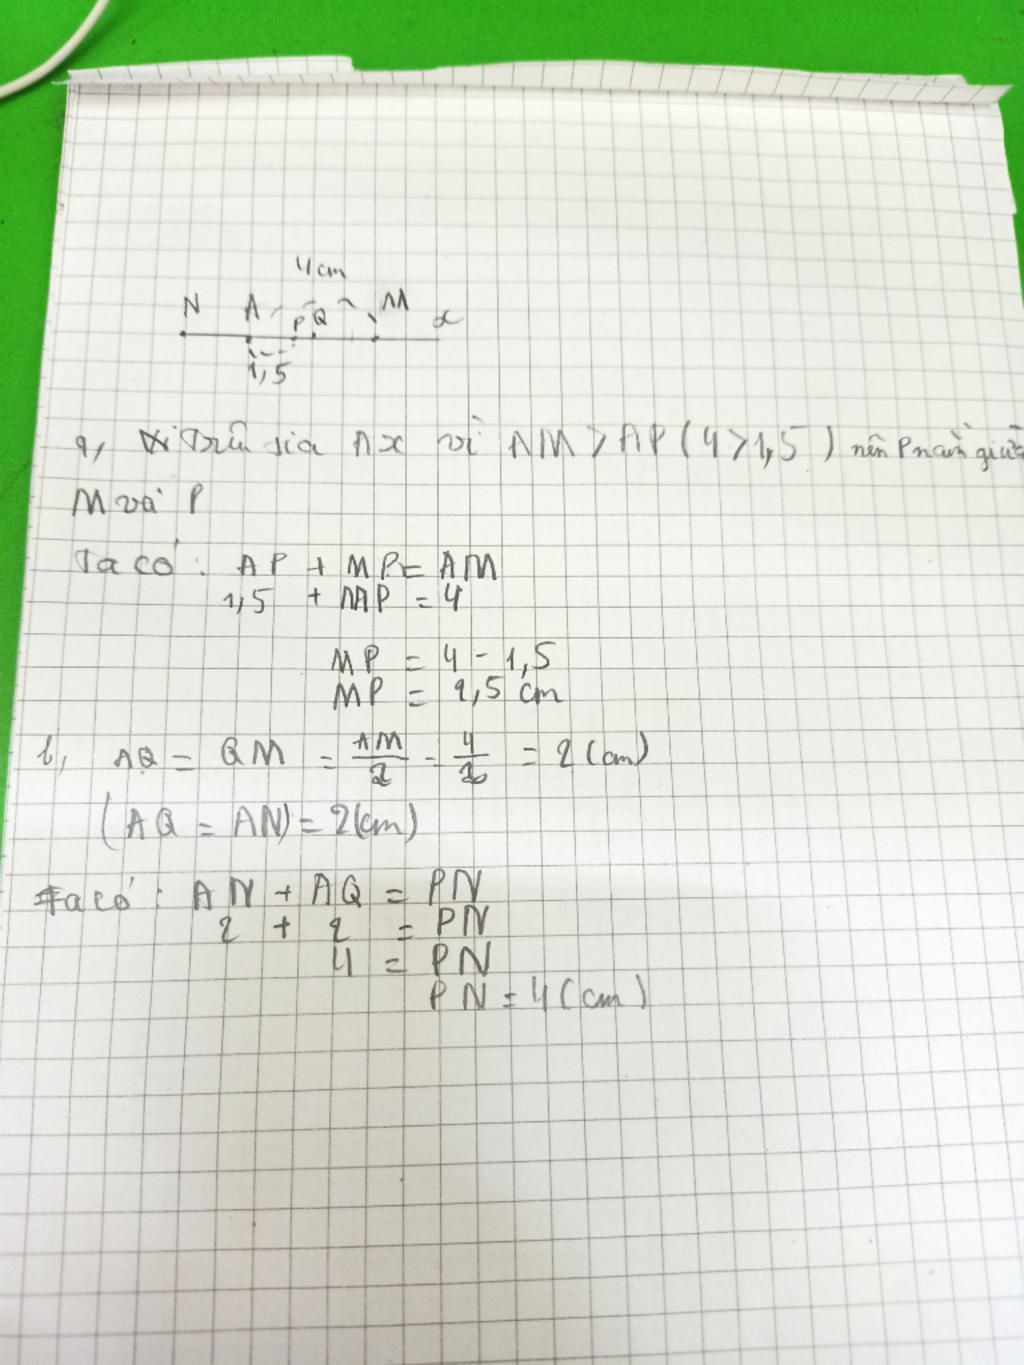 4cm
N A P Q M x
1,5
a, Trên tia Ax vì AM > AP (4 > 1,5) nên P nằm giữa
M và P
Ta có: AP + MP = AM
1,5 + MP = 4
MP = 4 - 1,5
MP = 2,5 cm
b, AQ = QM = AM/2 = 4/2 = 2 (cm)
(AQ = AN) = 2(cm)
Ta có: AN + AQ = PN
2 + 2 = PN
4 = PN
PN = 4 (cm)